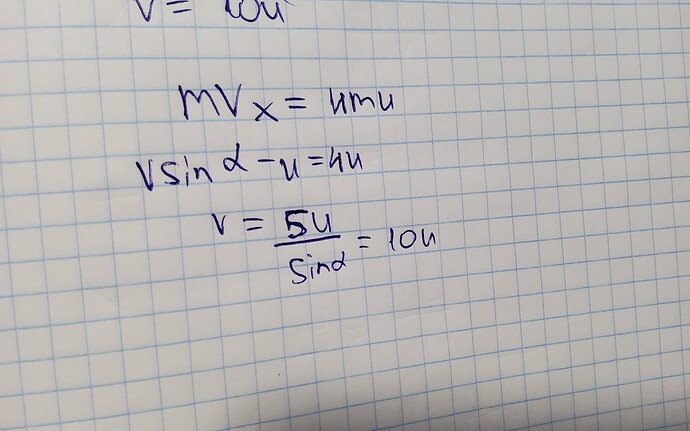 V = 10u
mVx = 4mu
Vsinα - u = 4u
V = 5u/sinα = 10u